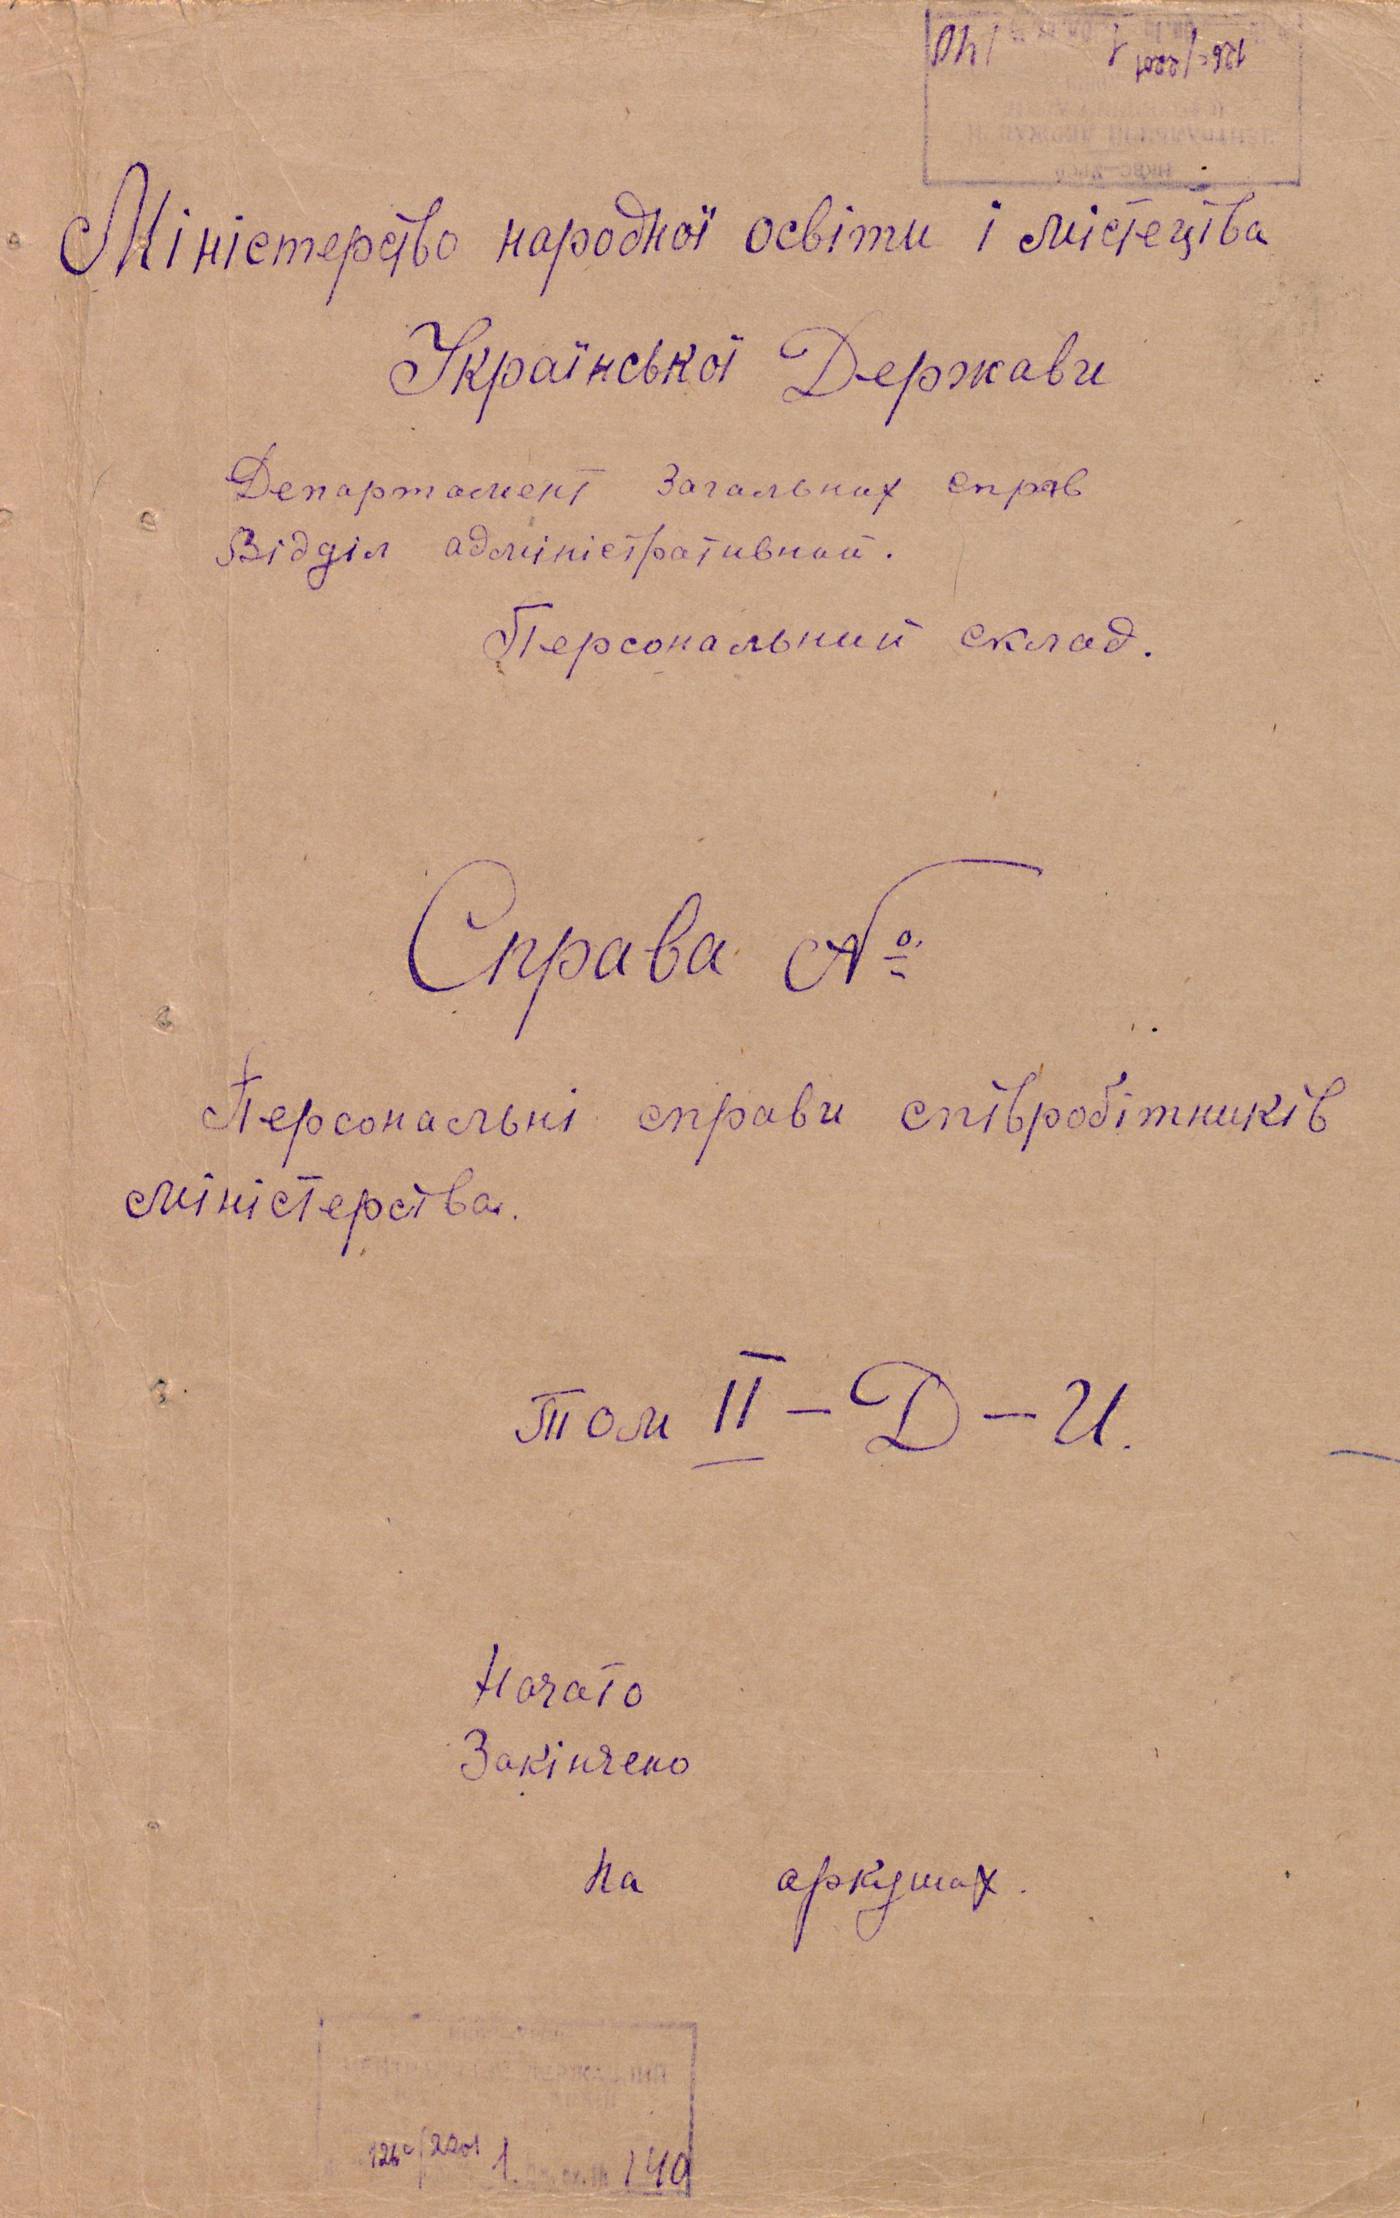 126с/2201 1 140
Міністерство народної освіти і містецтва
Української Держави
Департамент Загальних справ
Відділ адміністративний.
Персональний склад.
Справа №
Персональні справи співробітників
міністерства.
том II – Д – И.
Начато
Закінчено
на аркушах.
126с/2201 1. 140